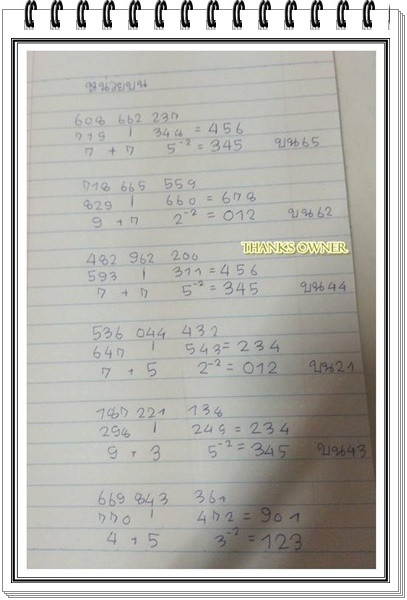 หน่วยบน
608 662 237
719 | 348 = 456
7 + 7 5⁻² = 345 บน65
718 665 559
829 | 660 = 678
9 + 7 2⁻² = 012 บน62
THANKS OWNER.
482 962 200
593 | 311 = 456
7 + 7 5⁻² = 345 บน44
536 044 432
647 | 543 = 234
7 + 5 2⁻² = 012 บน21
187 221 138
298 | 249 = 234
9 + 3 5⁻² = 345 บน43
669 843 361
770 | 472 = 901
4 + 5 3⁻² = 123